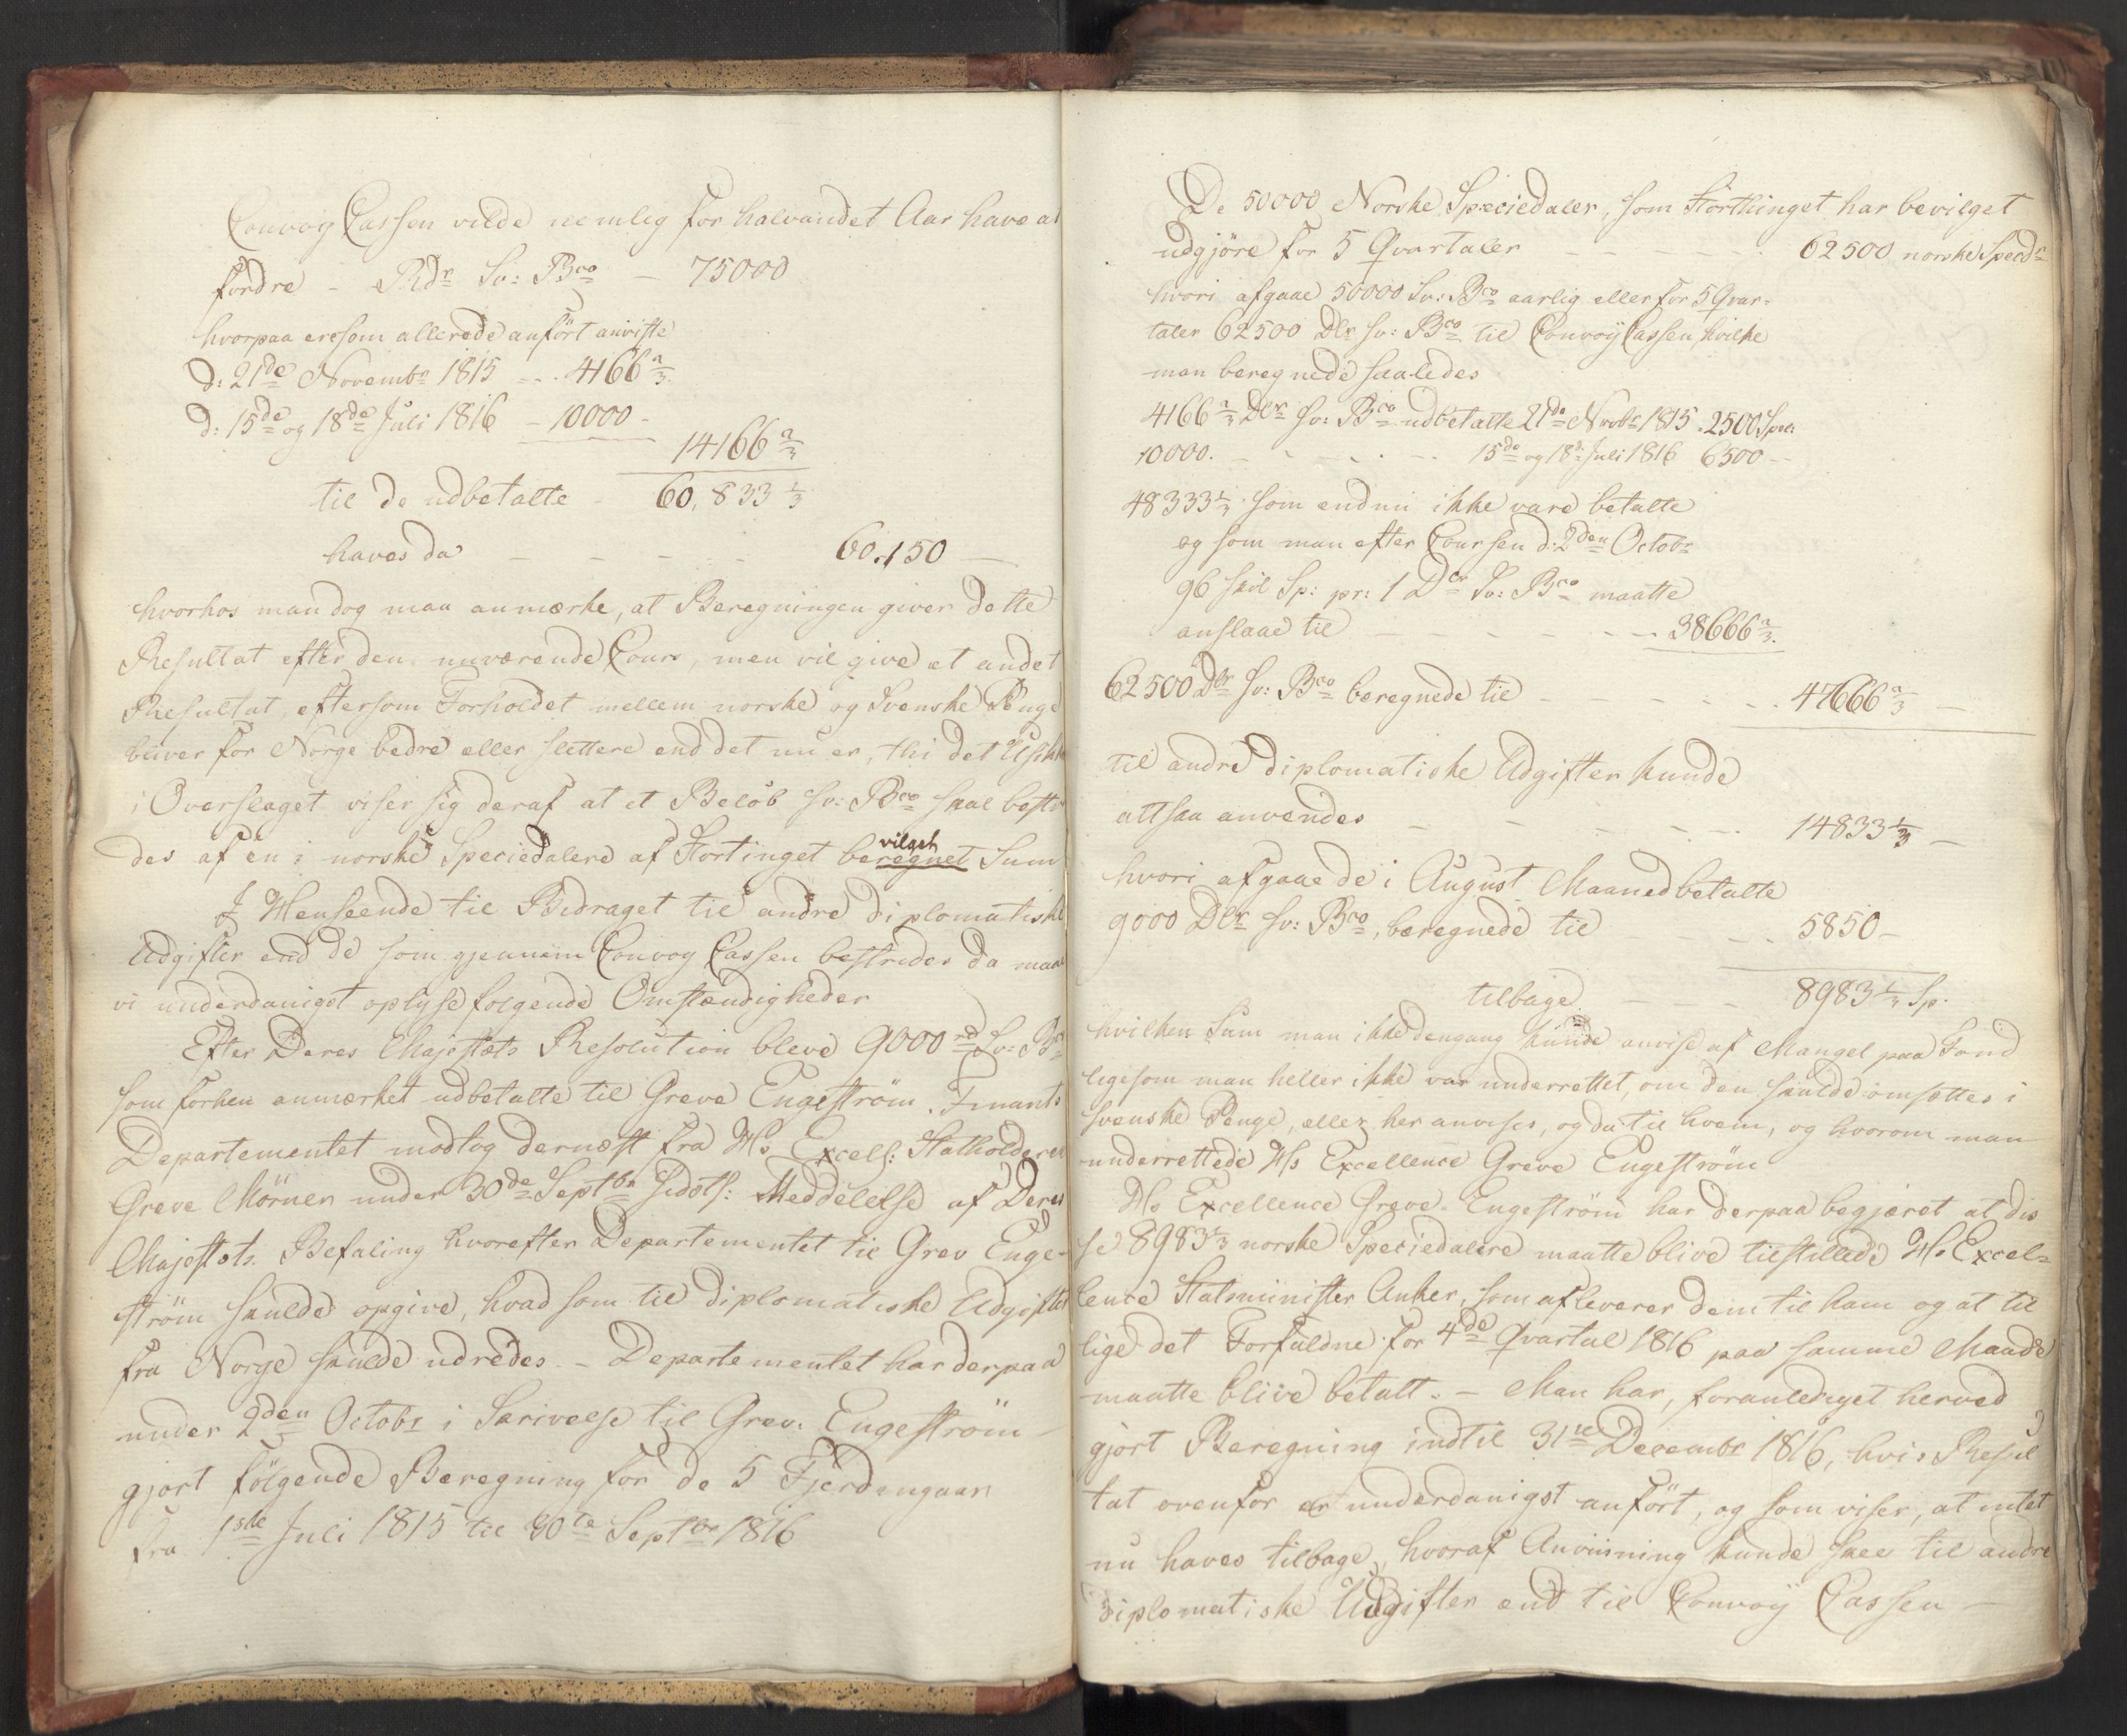 Convoy Cassen vilde nemlig for halvandet Aar have at
fordre - Rdr Sv: Bco - 75000
hvorpaa ere som allerede anført anviste
d: 21de Novembr 1815 - . . 4166 2/3
d: 15de og 18de Juli 1816 - 10000 -
14166 2/3
til de udbetalte - 60,833 1/3
haves da - - - - 60,150 -
hvorhos man dog maa anmærke, at Beregningen giver dette
Resultat efter den nuværende Cours, men vil give et andet
Resultat, eftersom Forholdet mellem norske og Svenske Penge
bliver for Norge bedre eller slettere end det nu er, thi det
i Overslaget viser sig deraf at et Beløb Sv: Bco skal bestri
des af en i norske Speciedalere af Stortinget beregnet vilget Sum
I Henseende til Bidraget til andre diplomatiske
Udgifter end de som gjennem Convoy Cassen bestrides da maae
vi underdanigst oplyse følgende Omstændigheder
Efter Deres Majestæts Resolution bleve 9000 rd Sv: Bco
som forhen anmærket udbetalte til Greve Engeström. Finants
Departementet modtog dernæst fra Hs Excell: Statholderen
Greve Mörner under 30de Septbr sidstl: Meddelelse af Deres
Majestæts Befaling hvorefter Departementet til Grev Enge-
ström skulde opgive, hvad som til diplomatiske Udgifter
fra Norge skulde udredes. - Departementet har derpaa
under 2den Octobr i Skrivelse til Grev: Engeström -
gjort følgende Beregning for de 5 Fjerdingaar
fra 1ste Juli 1815 til 30te Septbr 1816
De 50000 Norske Speciedaler, som Storthinget har bevilget
udgjöre for 5 Qvartaler - - - - - 62500 norske Specdr
hvori afgaae 50000 Sv: Bco aarlig eller for 5 Qvar-
taler 62500 Dlr Sv: Bco til Convoy Cassen, hvilke
man beregnede saaledes
4166 2/3 Dlr Sv: Bco udbetalte 21de Novbr 1815 . 2500 Spec:
10000. - - - - - 15de og 18de Juli 1816 6500 -
48333 1/3 som endnu ikke vare betalte
og som man efter Coursen d: 2den Octobr
96 skil Sp: pr: 1 Dlr Sv: Bco maatte
anslaae til - - - - - 38666 2/3.
62500 Dlr Sv: Bco beregnede til - - - - - 47666 2/3 -
til andre diplomatiske Udgifter kunde
altsaa anvendes - - - - - 14833 1/3 -
hvori afgaae de i August Maaned betalte
9000 Dlr Sv: Bco, beregnede til - - . 5850 -
tilbage - - - 8983 1/3 Sp.
hvilken Sum man ikke dengang kunde anvise af Mangel paa Fond
ligesom man heller ikke var underrettet, om den skulde omsættes i
svenske Penge, eller her anvises, og da til hvem, og hvorom man
underrettede Hs Excellence Greve Engeström
Hs Excellence Greve Engeström har derpaa begjæret at dis
se 8983 1/3 norske Speciedalere maatte blive tilstillede Hs Excel-
lence Statsminister Anker, som afleverer dem til ham og at til
lige det Forfaldne for 4de Qvartal 1816 paa samme Maade
maatte blive betalt. - Man har, foranlediget herved
gjort Beregning indtil 31te Decembr 1816, hvis Resul
tat ovenfor er underdanigst anført, og som viser, at intet
nu haves tilbage, hvoraf Anviisning kunde skee til andre
diplomatiske Udgifter end til Convoy Cassen -